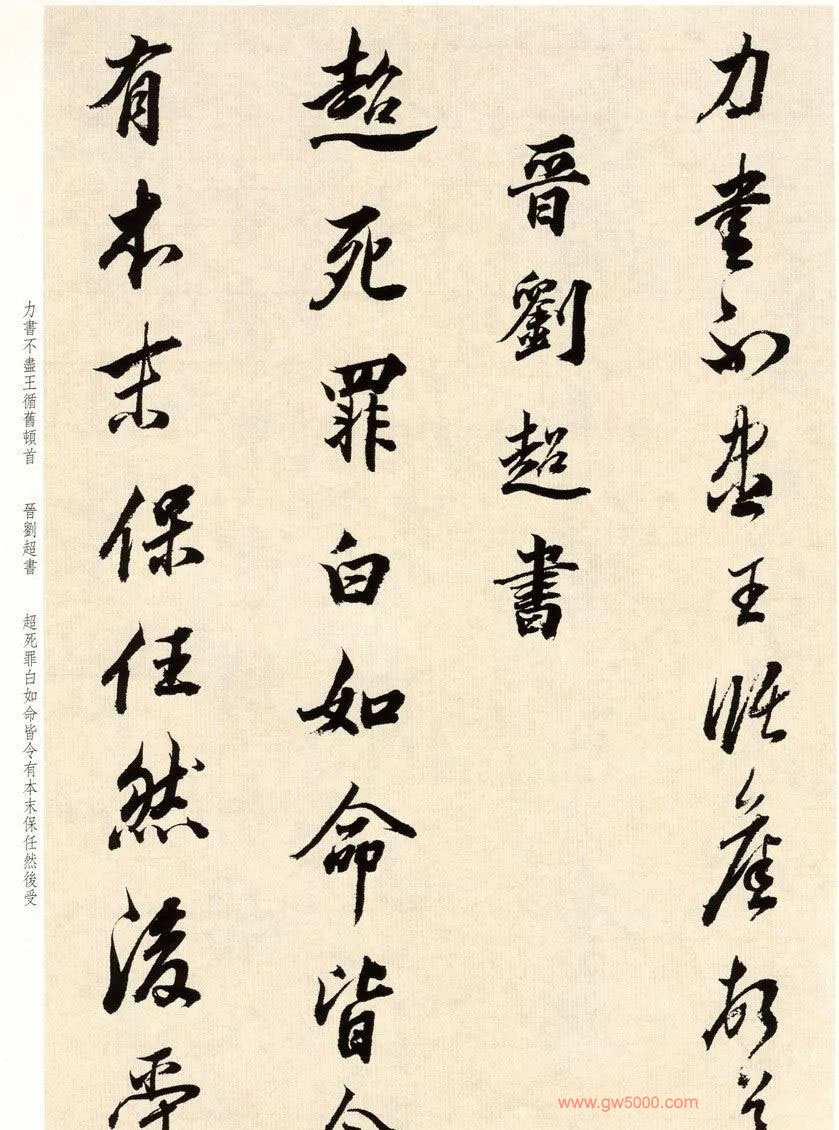 力書不盡王循舊頓首
晉劉超書
超死罪白如命皆令
有本末保任然後受
力書不盡王循舊頓首 晉劉超書 超死罪白如命皆令有本末保任然後受
www.gw5000.com